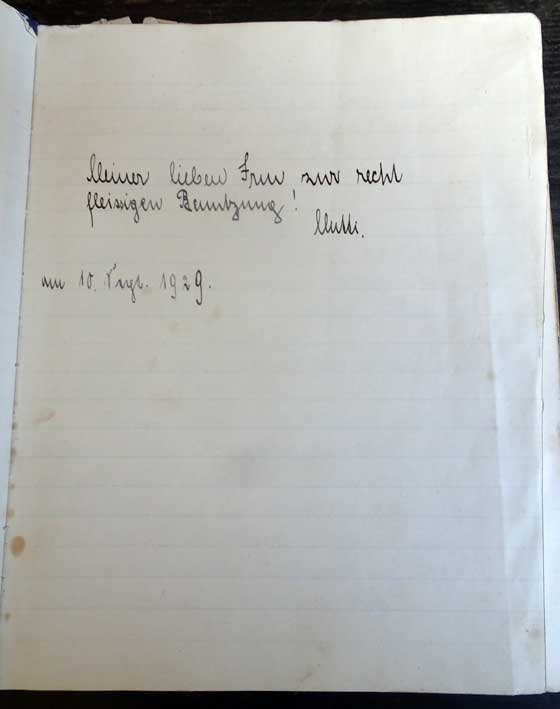 Meiner lieben Irm zur recht
fleissigen Benutzung!
Mutti.
am 10. Sept. 1929.